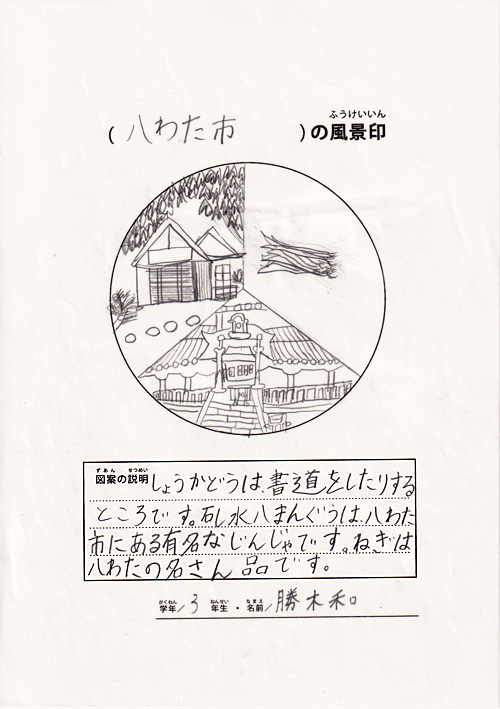 ふうけいいん
(八わた市 )の風景印
ずあん せつめい
図案の説明 しょうかどうは、書道をしたりする
ところです。石し水八まんぐうは、八わた
市にある有名なじんじゃです。ねぎは
八わたの名さん品です。
がくねん ねんせい なまえ
学年/3 年生・名前/勝木和